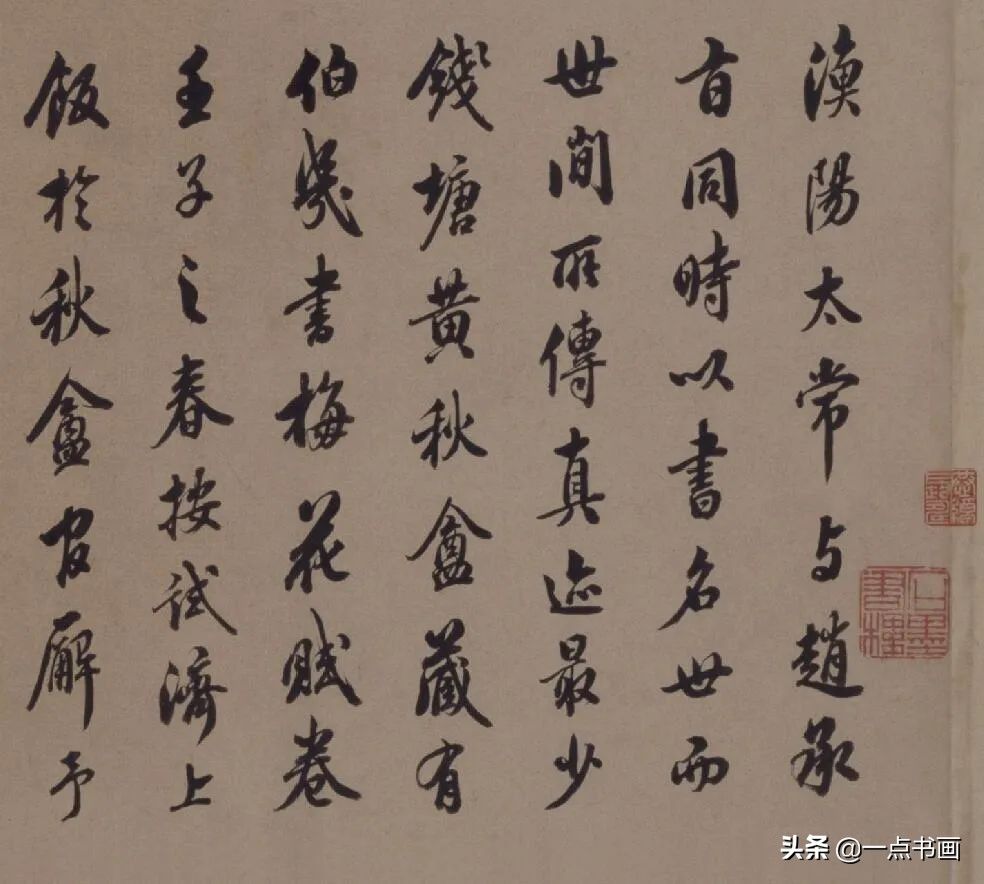 漁陽太常与趙承
旨同時以書名世而
世間所傳真迹最少
錢塘黄秋盦藏有
伯幾書梅花賦卷
壬子之春按試濟上
飯於秋盦官廨予
石墨書樓
头条 @一点书画